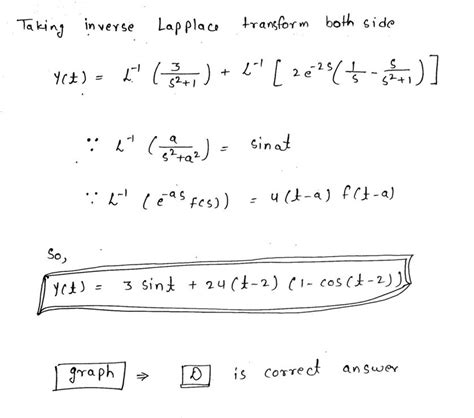 Taking inverse Lapplace transform both side
Y(t) = L⁻¹ (3/(s²+1)) + L⁻¹ [2e⁻²ˢ(1/s - s/(s²+1))]
∵ L⁻¹ (a/(s²+a²)) = sinat
∵ L⁻¹ (e⁻ᵃˢ f(s)) = u(t-a) f(t-a)
So,
Y(t) = 3 sint + 2u(t-2) (1- cos(t-2))
graph ⇒ D is correct answer